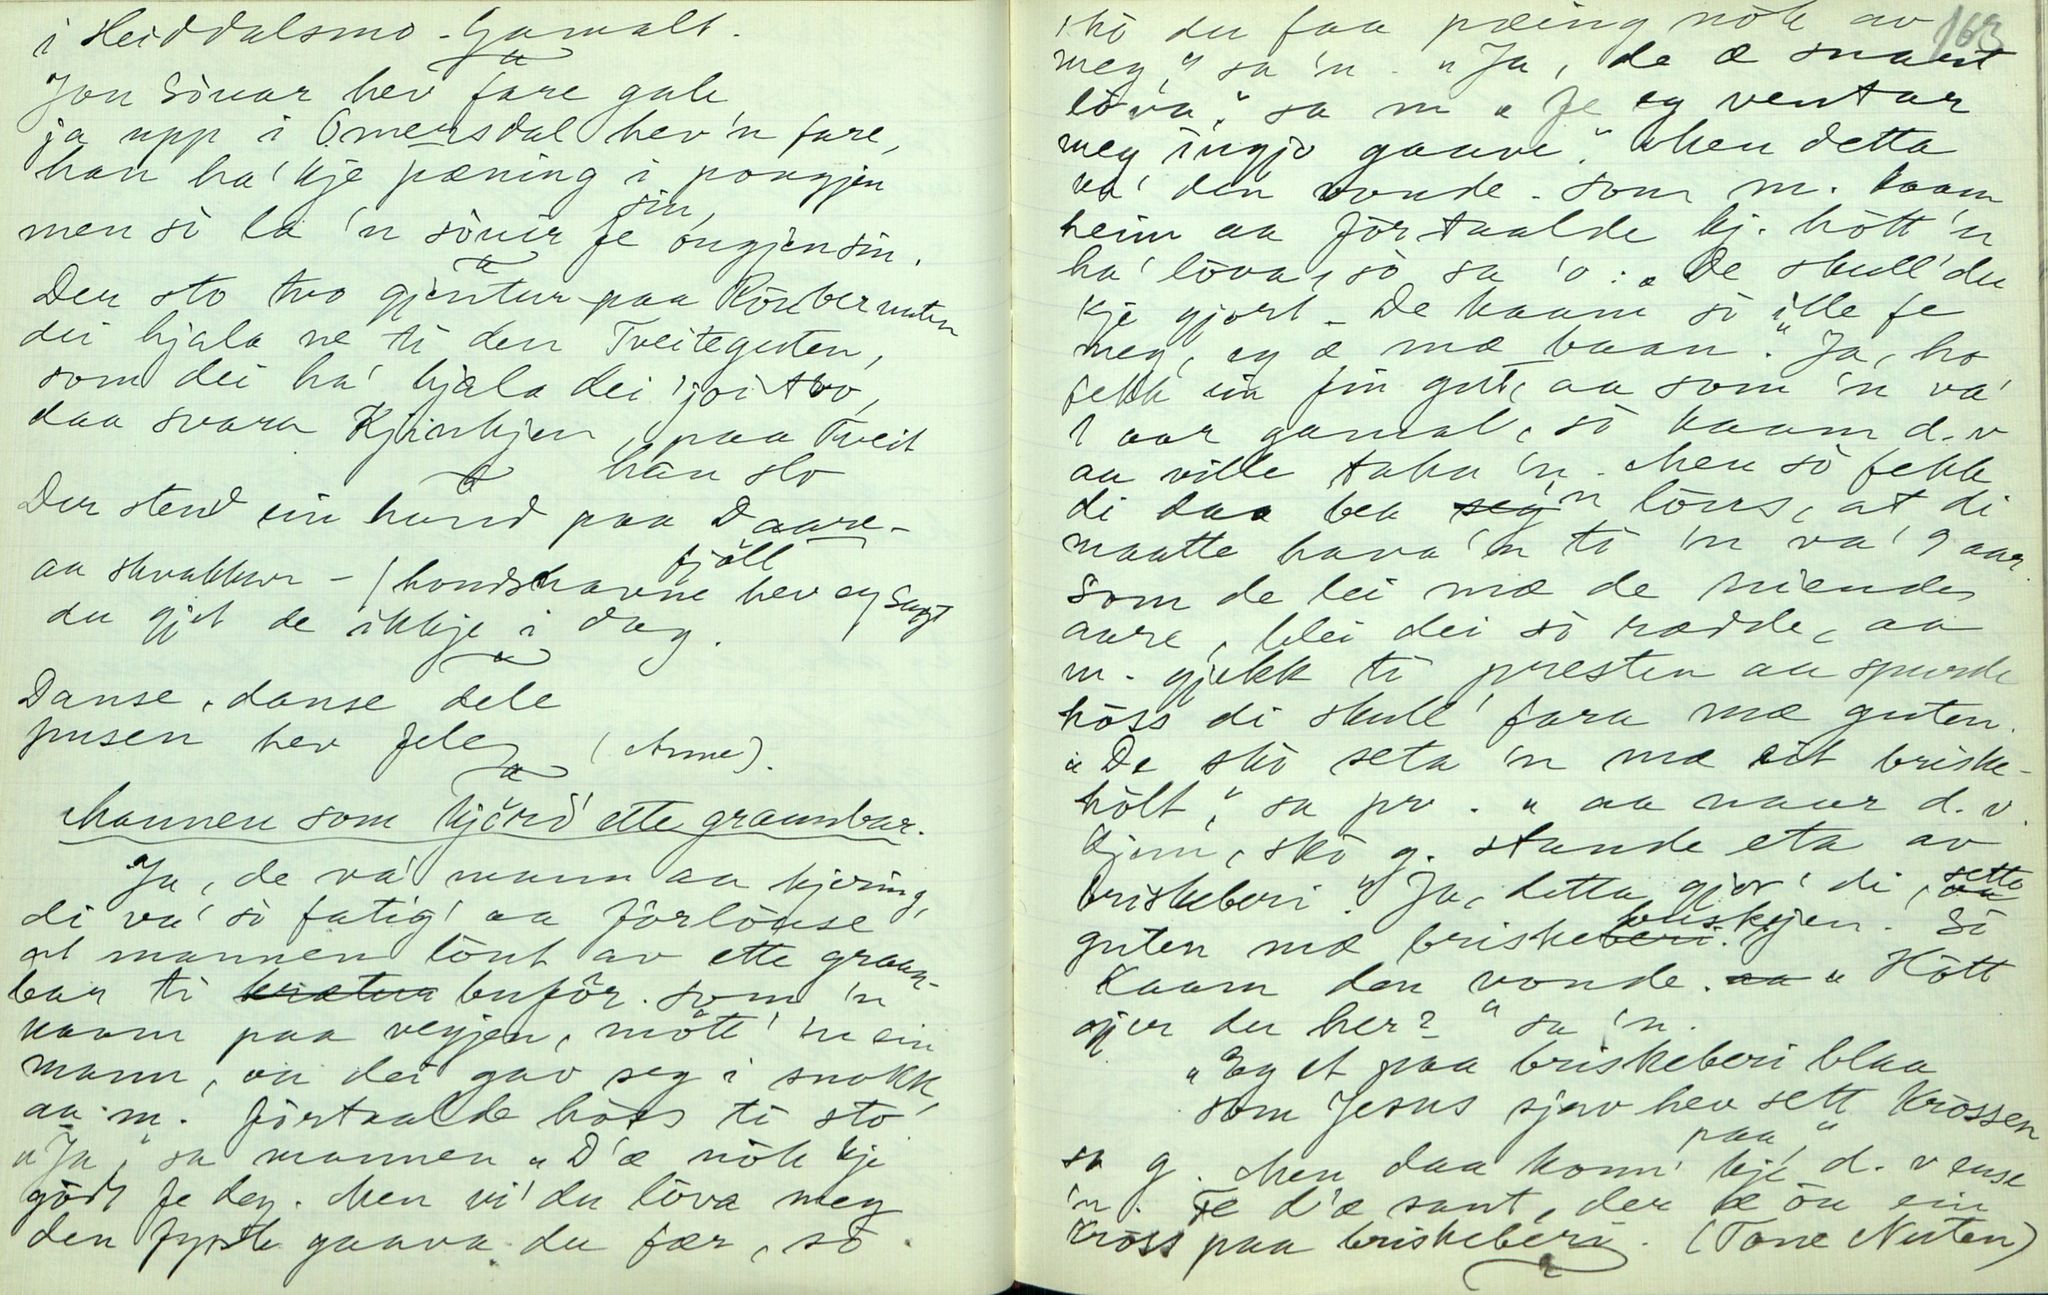 i Heiddalsmo - Gamalt.
Jon Sönar hev fare gale
ja upp i Omersdal hev'n fare,
han ha' kje pæning i pongjen
sin,
men sò la 'n sönir fe ongjen sin.
Der sto tvo gjentur paa Rönbernuten
dei hjala ne ti den Tveiteguten,
som dei ha' hjala dei joi tvo,
daa svara Kjinkjen, paa Tveit
han slo
Der stend ein hund paa Daare-
fjöll
aa skvakkur - (hondsnavne hev eg sagt
du gjet de ikkje i dag.
Danse, danse dele
pusen hev fele (Anne).
Mannen som kjörd' ette graunbar.
Ja, de va' mann aa kjering,
di va' sò fatig' aa förlöuse
at mannen tönt av ette graun-
bar ti krætur buför. Som 'n
kaam paa vegjen, mötte 'n ein
mann, aa dei gav seg i snakk,
aa m. förtaalde höss ti sto
"Ja," sa mannen "D'æ nök kje
gödt fe deg. Men vi' du löva meg
den fyste gaava du fær, sò
skò du faa pæing nök av 163
meg," sa 'n. "Ja, de æ snart
löva." sa m "Fe eg ventar
meg ingjo gaave." Men detta
va' den vonde. Som m. kaam
heim aa förtaalde kj. hött 'n
ha' löva, sò sa 'o: "De skull' du
kje gjort - De kaam sò ille fe
meg, eg æ mæ baan." Ja, ho
fekk ein fin gut, aa som 'n va'
1 aar gamal, sò kaam d. v
aa ville taka 'n. Men sò fekk
di daa bea seg 'n löus, at di
maatte hava 'n ti 'n va' 9 aar.
Som de lei mæ de niende
aare, blei dei sò rædde, aa
m. gjekk ti presten aa spurde
höss di skull' fara mæ guten.
"De skò seta 'n mæ eit briske-
hölt," sa pr. "aa naar d. v.
kjem, skò g. stande eta av
briskeberi." Ja, detta gjor' di, sette
guten mæ briskeberi. briskjen. Sò
kaam den vonde. aa "Hött
gjer du her?" sa 'n.
"Eg et paa briskeberi blaa
som Jesus sjøv hev sett krossen
paa,"
sa g. Men daa konn' kje d. v ense
'n. Fe d'æ sant, der æ öu ein
kross paa briskeberi. (Tone Nuten)